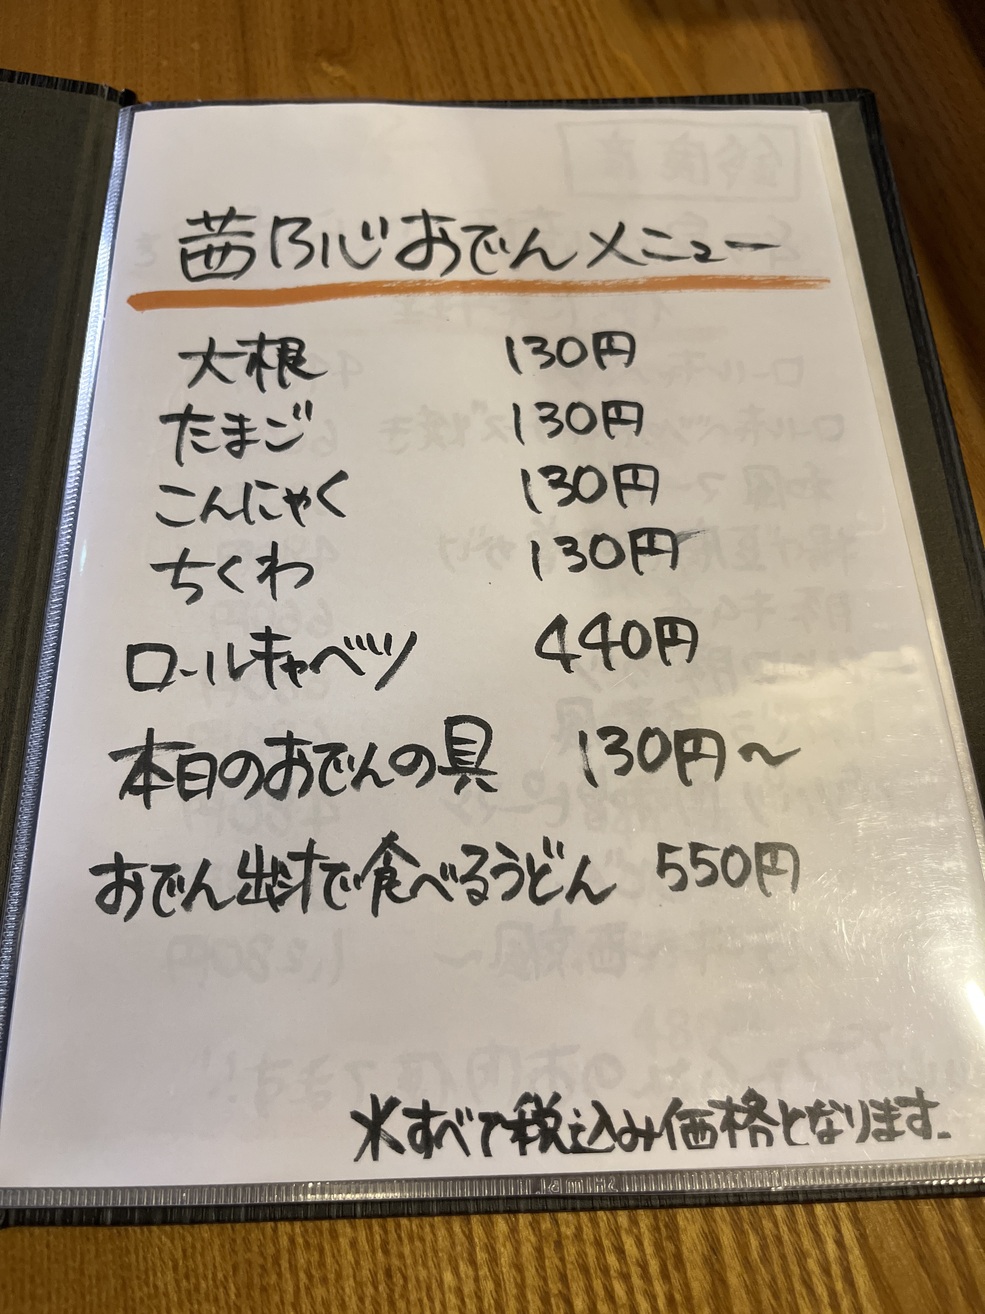 茜乃心おでんメニュー
大根 130円
たまご 130円
こんにゃく 130円
ちくわ 130円
ロールキャベツ 440円
本日のおでんの具 130円～
おでん出汁で食べるうどん 550円
※すべて税込み価格となります。